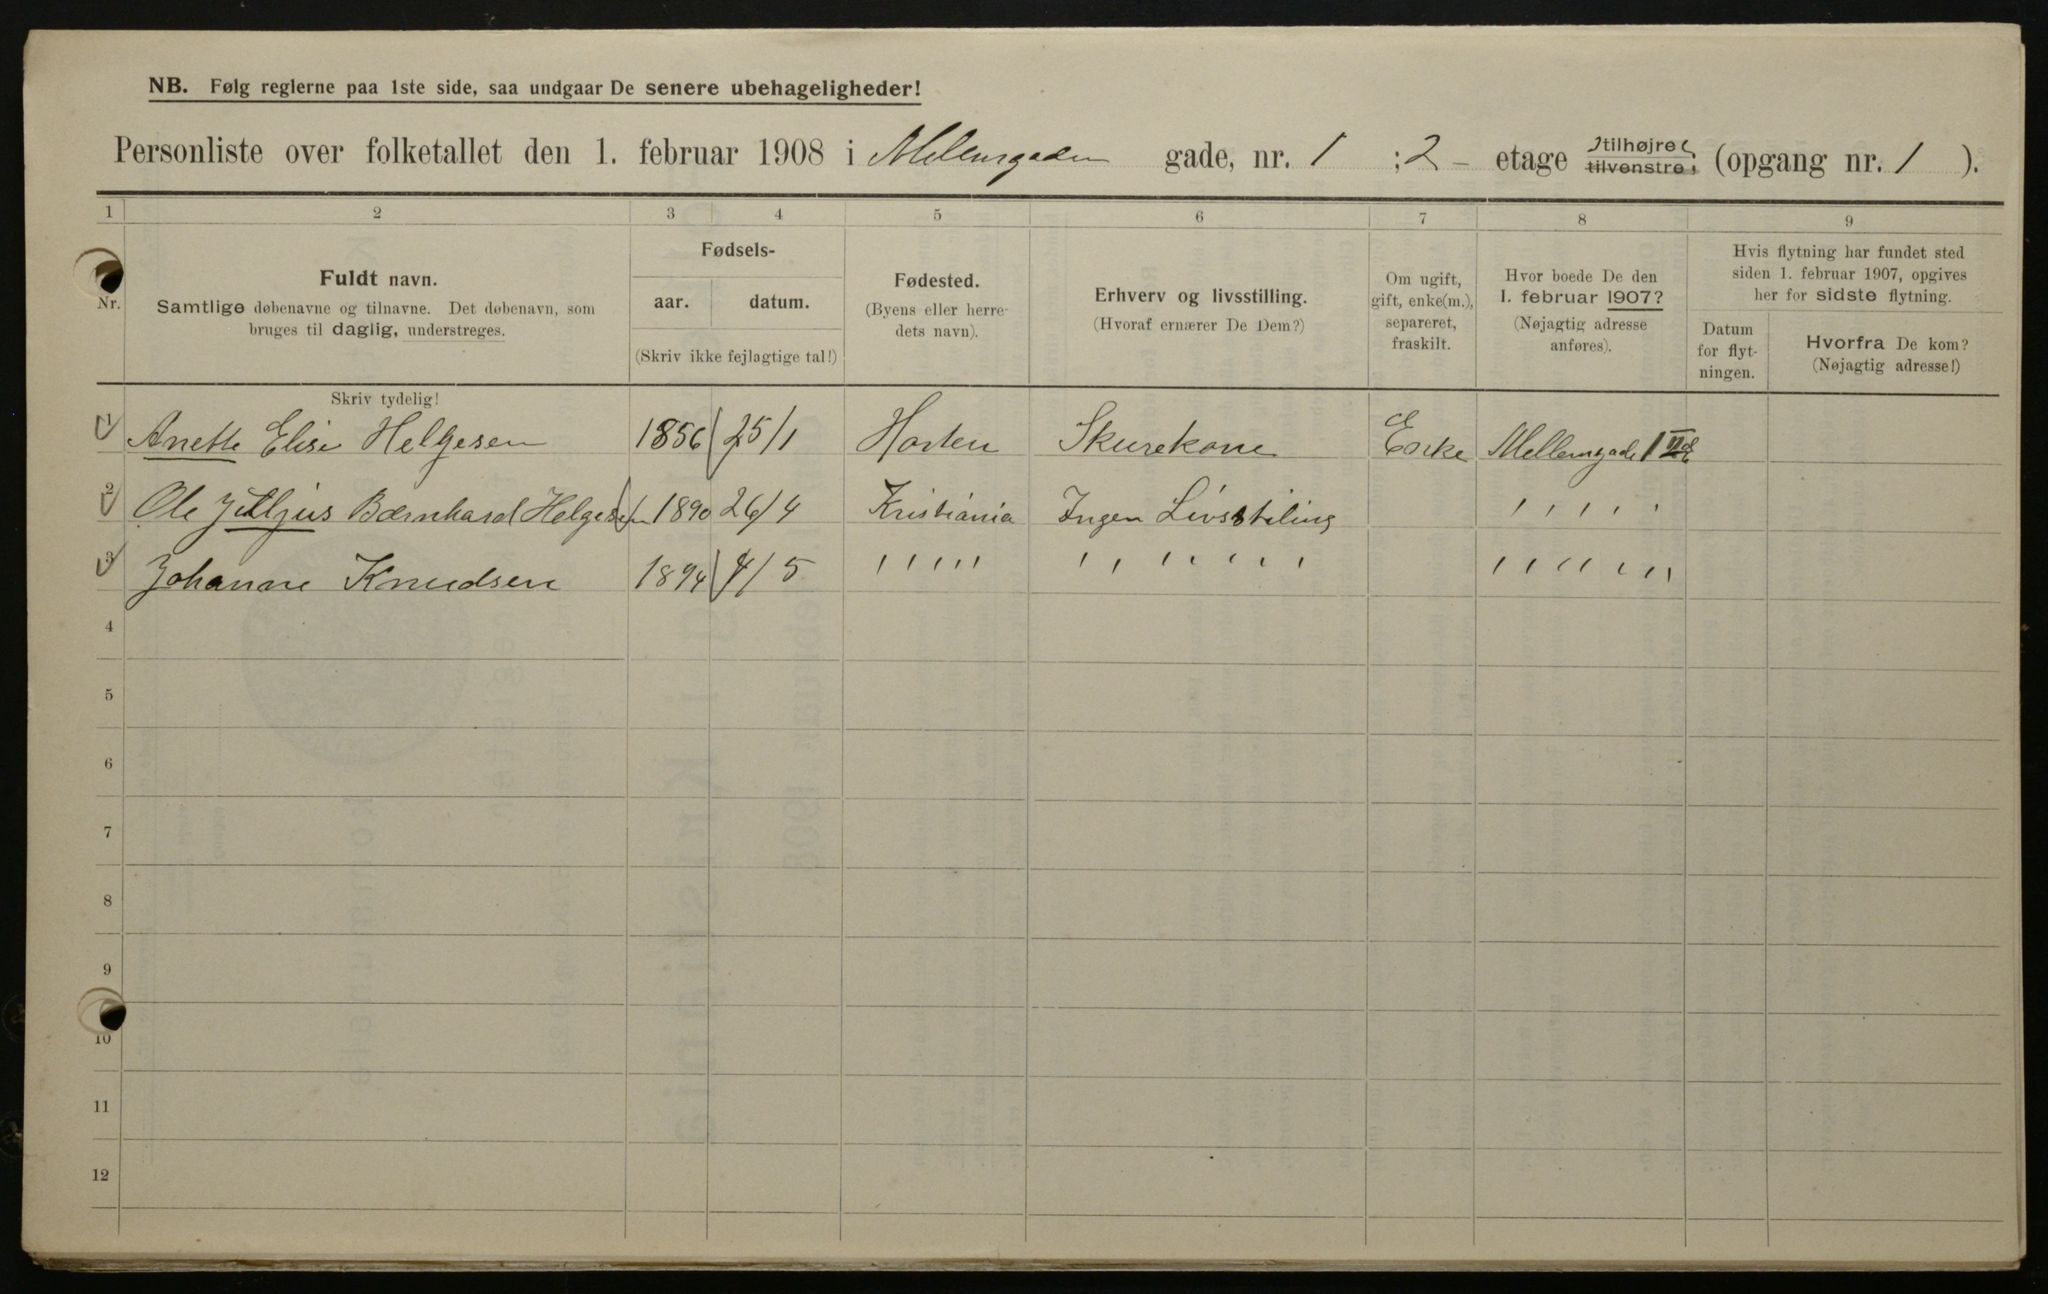 NB. Følg reglerne paa 1ste side, saa undgaar De senere ubehageligheder!
Personliste over folketallet den 1. februar 1908 i Mellemgaden gade, nr. 1 ; 2 - etage tilhøjre tilvenstre; (opgang nr. 1 ).
1 2 3 4 5 6 7 8 9
Nr.
Fuldt navn.
Samtlige døbenavne og tilnavne. Det døbenavn, som
bruges til daglig, understreges.
Fødsels-
aar. datum.
(Skriv ikke fejlagtige tal!)
Fødested.
(Byens eller herre-
dets navn).
Erhverv og livsstilling.
(Hvoraf ernærer De Dem?)
Om ugift,
gift, enke(m.),
separeret,
fraskilt.
Hvor boede De den
1. februar 1907?
(Nøjagtig adresse
anføres).
Hvis flytning har fundet sted
siden 1. februar 1907, opgives
her for sidste flytning.
Datum
for flyt-
ningen.
Hvorfra De kom?
(Nøjagtig adresse!)
Skriv tydelig!
1 Anette Elise Helgesen 1856 25/1 Horten Skurekone e Enke Mellemgade 1 II
2 Ole Julljus Bærnhard Helgesen 1890 26/4 Kristiania Ingen Livsstiling ' ' ' ' '
3 Johanne Knudsen 1894 4/5 ' ' ' ' ' ' ' ' ' ' ' ' ' ' ' ' ' ' '
4
5
6
7
8
9
10
11
12